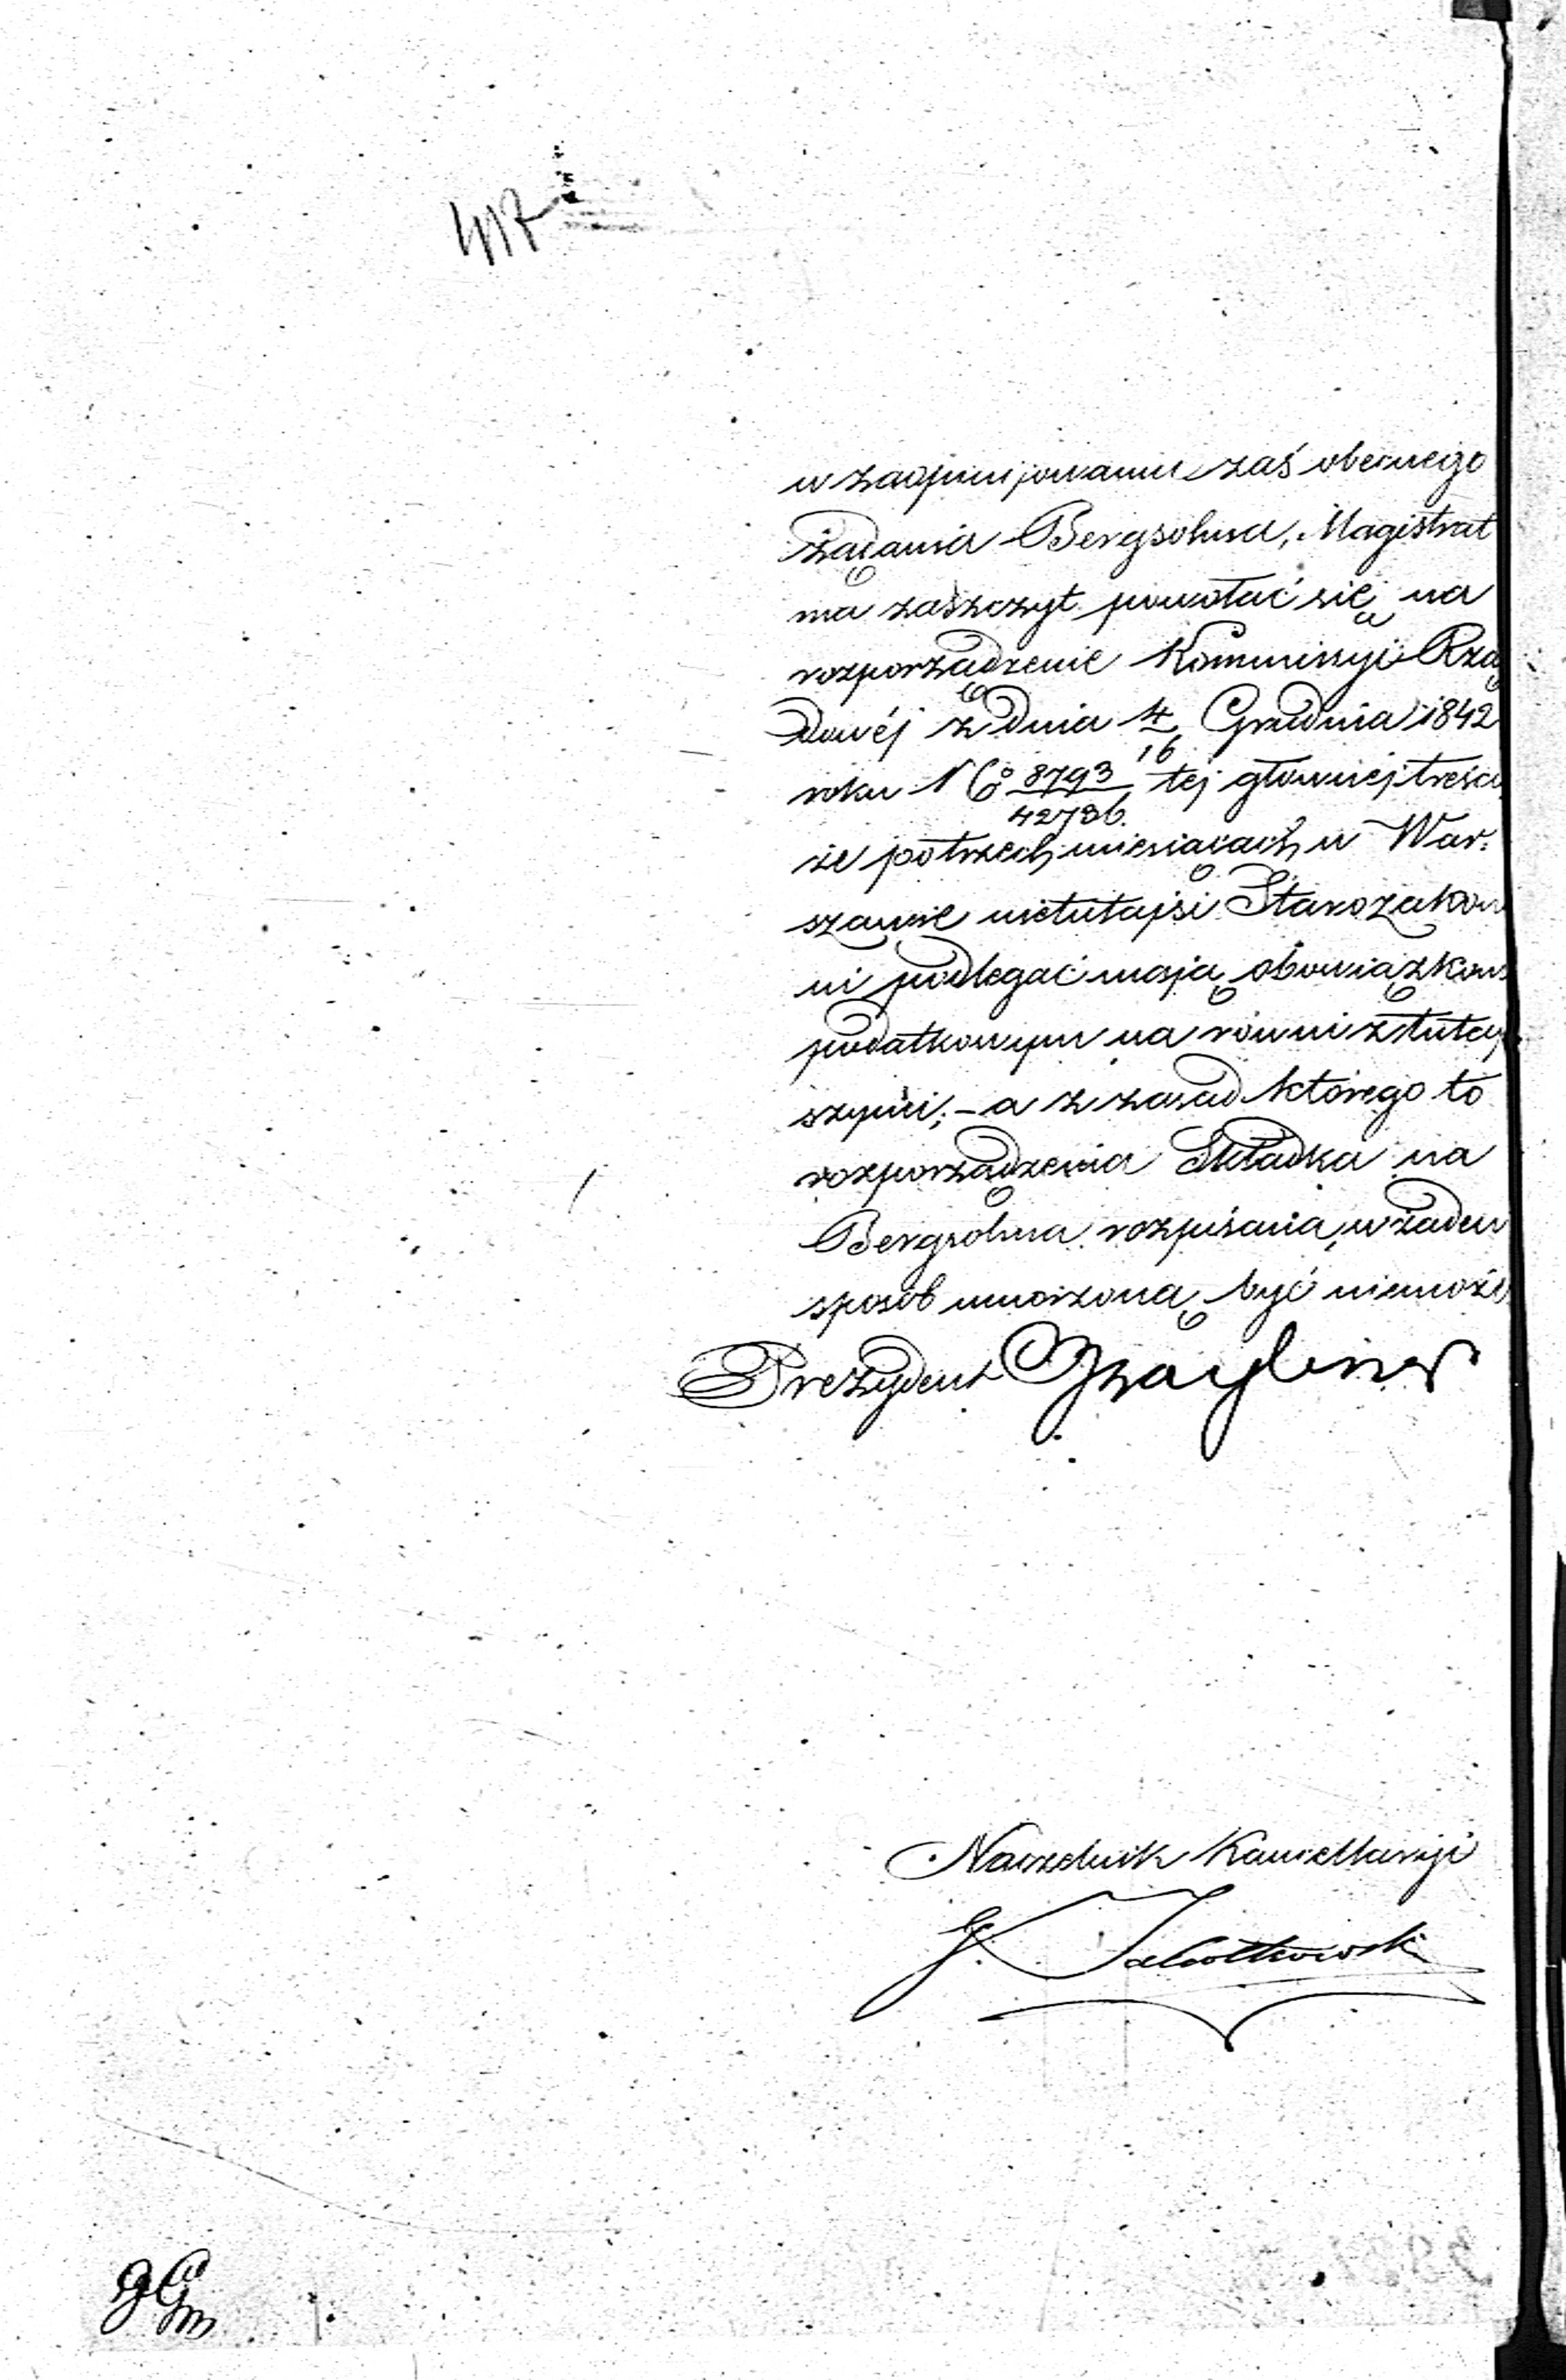 417
w zaopinijowaniu zaś obecnego
żądania Bergsohna, Magistrat
ma zaszczyt powołać się na
rozporządzenie Kommissyi Rzą
dowéj z dnia 4/16 Grudnia 1842
roku No 8793/42786. tej głównej treści
że po trzech miesiącach w War-
szawie nietutajsi Starozakon
ni podlegać mają obowiązkom
podatkowym na równi z tutej
szymi; - a z zasad którego to
rozporządzenia Składka na
Bergsohna rozpisana, w żaden
sposób umorzoną być niemoże
Prezydent
Naczelnik Kancellaryi